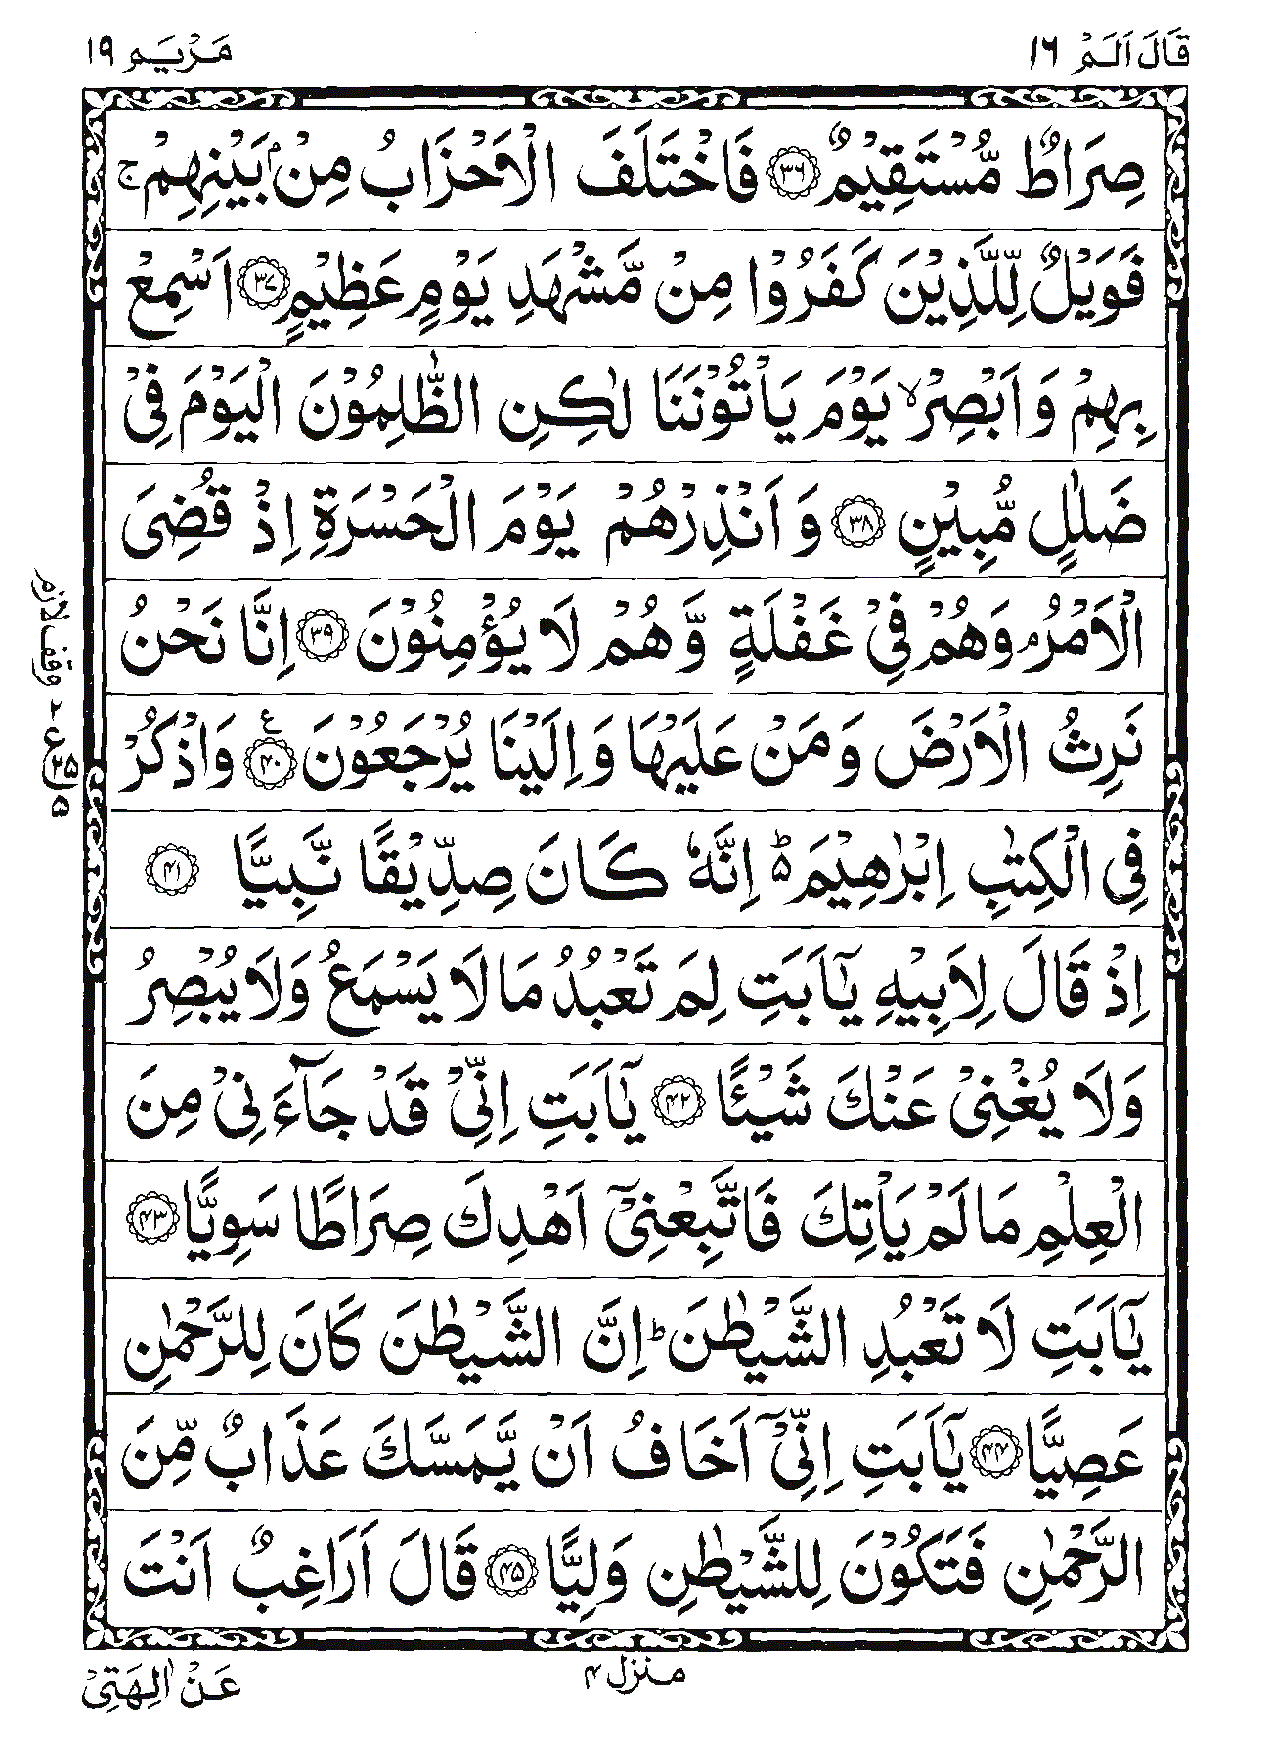 قَالَ اَلَمۡ ١٦
مَرۡيَم ١٩
صِرَاطٌ مُّسۡتَقِيۡمٌ ﴿۳۶﴾ فَاخۡتَلَفَ الۡاَحۡزَابُ مِنۡۢ بَيۡنِهِمۡ‌ ۚ
فَوَيۡلٌ لِّلَّذِيۡنَ كَفَرُوۡا مِنۡ مَّشۡهَدِ يَوۡمٍ عَظِيۡمٍ ﴿۳۷﴾ اَسۡمِعۡ
بِهِمۡ وَ اَبۡصِرۡ ۙ يَوۡمَ يَاۡتُوۡنَنَا‌ لٰـكِنِ الظّٰلِمُوۡنَ الۡيَوۡمَ فِىۡ
ضَلٰلٍ مُّبِيۡنٍ ﴿۳۸﴾ وَ اَنۡذِرۡهُمۡ يَوۡمَ الۡحَسۡرَةِ اِذۡ قُضِىَ
الۡاَمۡرُ‌ۘ وَهُمۡ فِىۡ غَفۡلَةٍ وَّ هُمۡ لَا يُؤۡمِنُوۡنَ ﴿۳۹﴾ اِنَّا نَحۡنُ
نَرِثُ الۡاَرۡضَ وَ مَنۡ عَلَيۡهَا وَ اِلَيۡنَا يُرۡجَعُوۡنَ ﴿۴۰﴾ ع وَاذۡكُرۡ
فِى الۡكِتٰبِ اِبۡرٰهِيۡمَ ؕ ۵ اِنَّهٗ كَانَ صِدِّيۡقًا نَّبِيًّا ﴿۴۱﴾
اِذۡ قَالَ لِاَبِيۡهِ يٰۤاَبَتِ لِمَ تَعۡبُدُ مَا لَا يَسۡمَعُ وَلَا يُبۡصِرُ
وَلَا يُغۡنِىۡ عَنۡكَ شَيۡـئًـا ﴿۴۲﴾ يٰۤاَبَتِ اِنِّىۡ قَدۡ جَآءَنِىۡ مِنَ
الۡعِلۡمِ مَا لَمۡ يَاۡتِكَ فَاتَّبِعۡنِىۡۤ اَهۡدِكَ صِرَاطًا سَوِيًّا ﴿۴۳﴾
يٰۤاَبَتِ لَا تَعۡبُدِ الشَّيۡطٰنَ‌ ؕ اِنَّ الشَّيۡطٰنَ كَانَ لِلرَّحۡمٰنِ
عَصِيًّا ﴿۴۴﴾ يٰۤاَبَتِ اِنِّىۡۤ اَخَافُ اَنۡ يَّمَسَّكَ عَذَابٌ مِّنَ
الرَّحۡمٰنِ فَتَكُوۡنَ لِلشَّيۡطٰنِ وَلِيًّا ﴿۴۵﴾ قَالَ اَرَاغِبٌ اَنۡتَ
وقف لازم
۲ ع ۲۵ ۵
منزل ۴
عَنۡ اٰلِهَتِىۡ